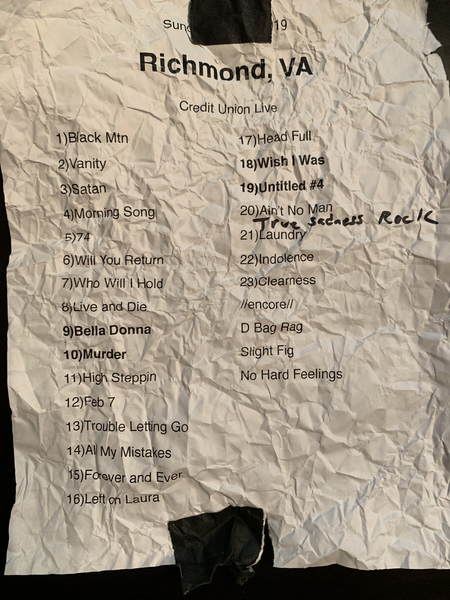 Sun 19
Richmond, VA
Credit Union Live
1)Black Mtn
2)Vanity
3)Satan
4)Morning Song
5)74
6)Will You Return
7)Who Will I Hold
8)Live and Die
9)Bella Donna
10)Murder
11)High Steppin
12)Feb 7
13)Trouble Letting Go
14)All My Mistakes
15)Forever and Ever
16)Left on Laura
17)Head Full
18)Wish I Was
19)Untitled #4
20)Ain't No Man
True Sadness Rock
21)Laundry
22)Indolence
23)Clearness
//encore//
D Bag Rag
Slight Fig
No Hard Feelings